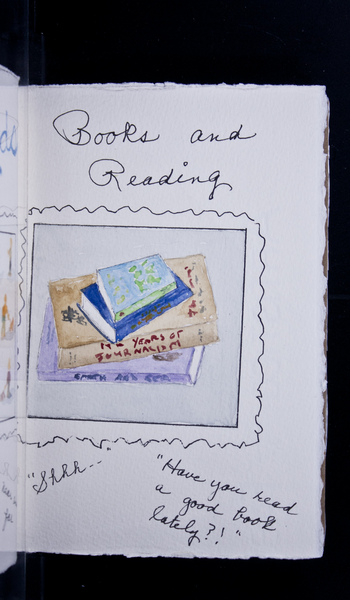 Books and
Reading
YEARS OF
JOURNALISM
"Shhh--"
"Have you read
a good book
lately?!"